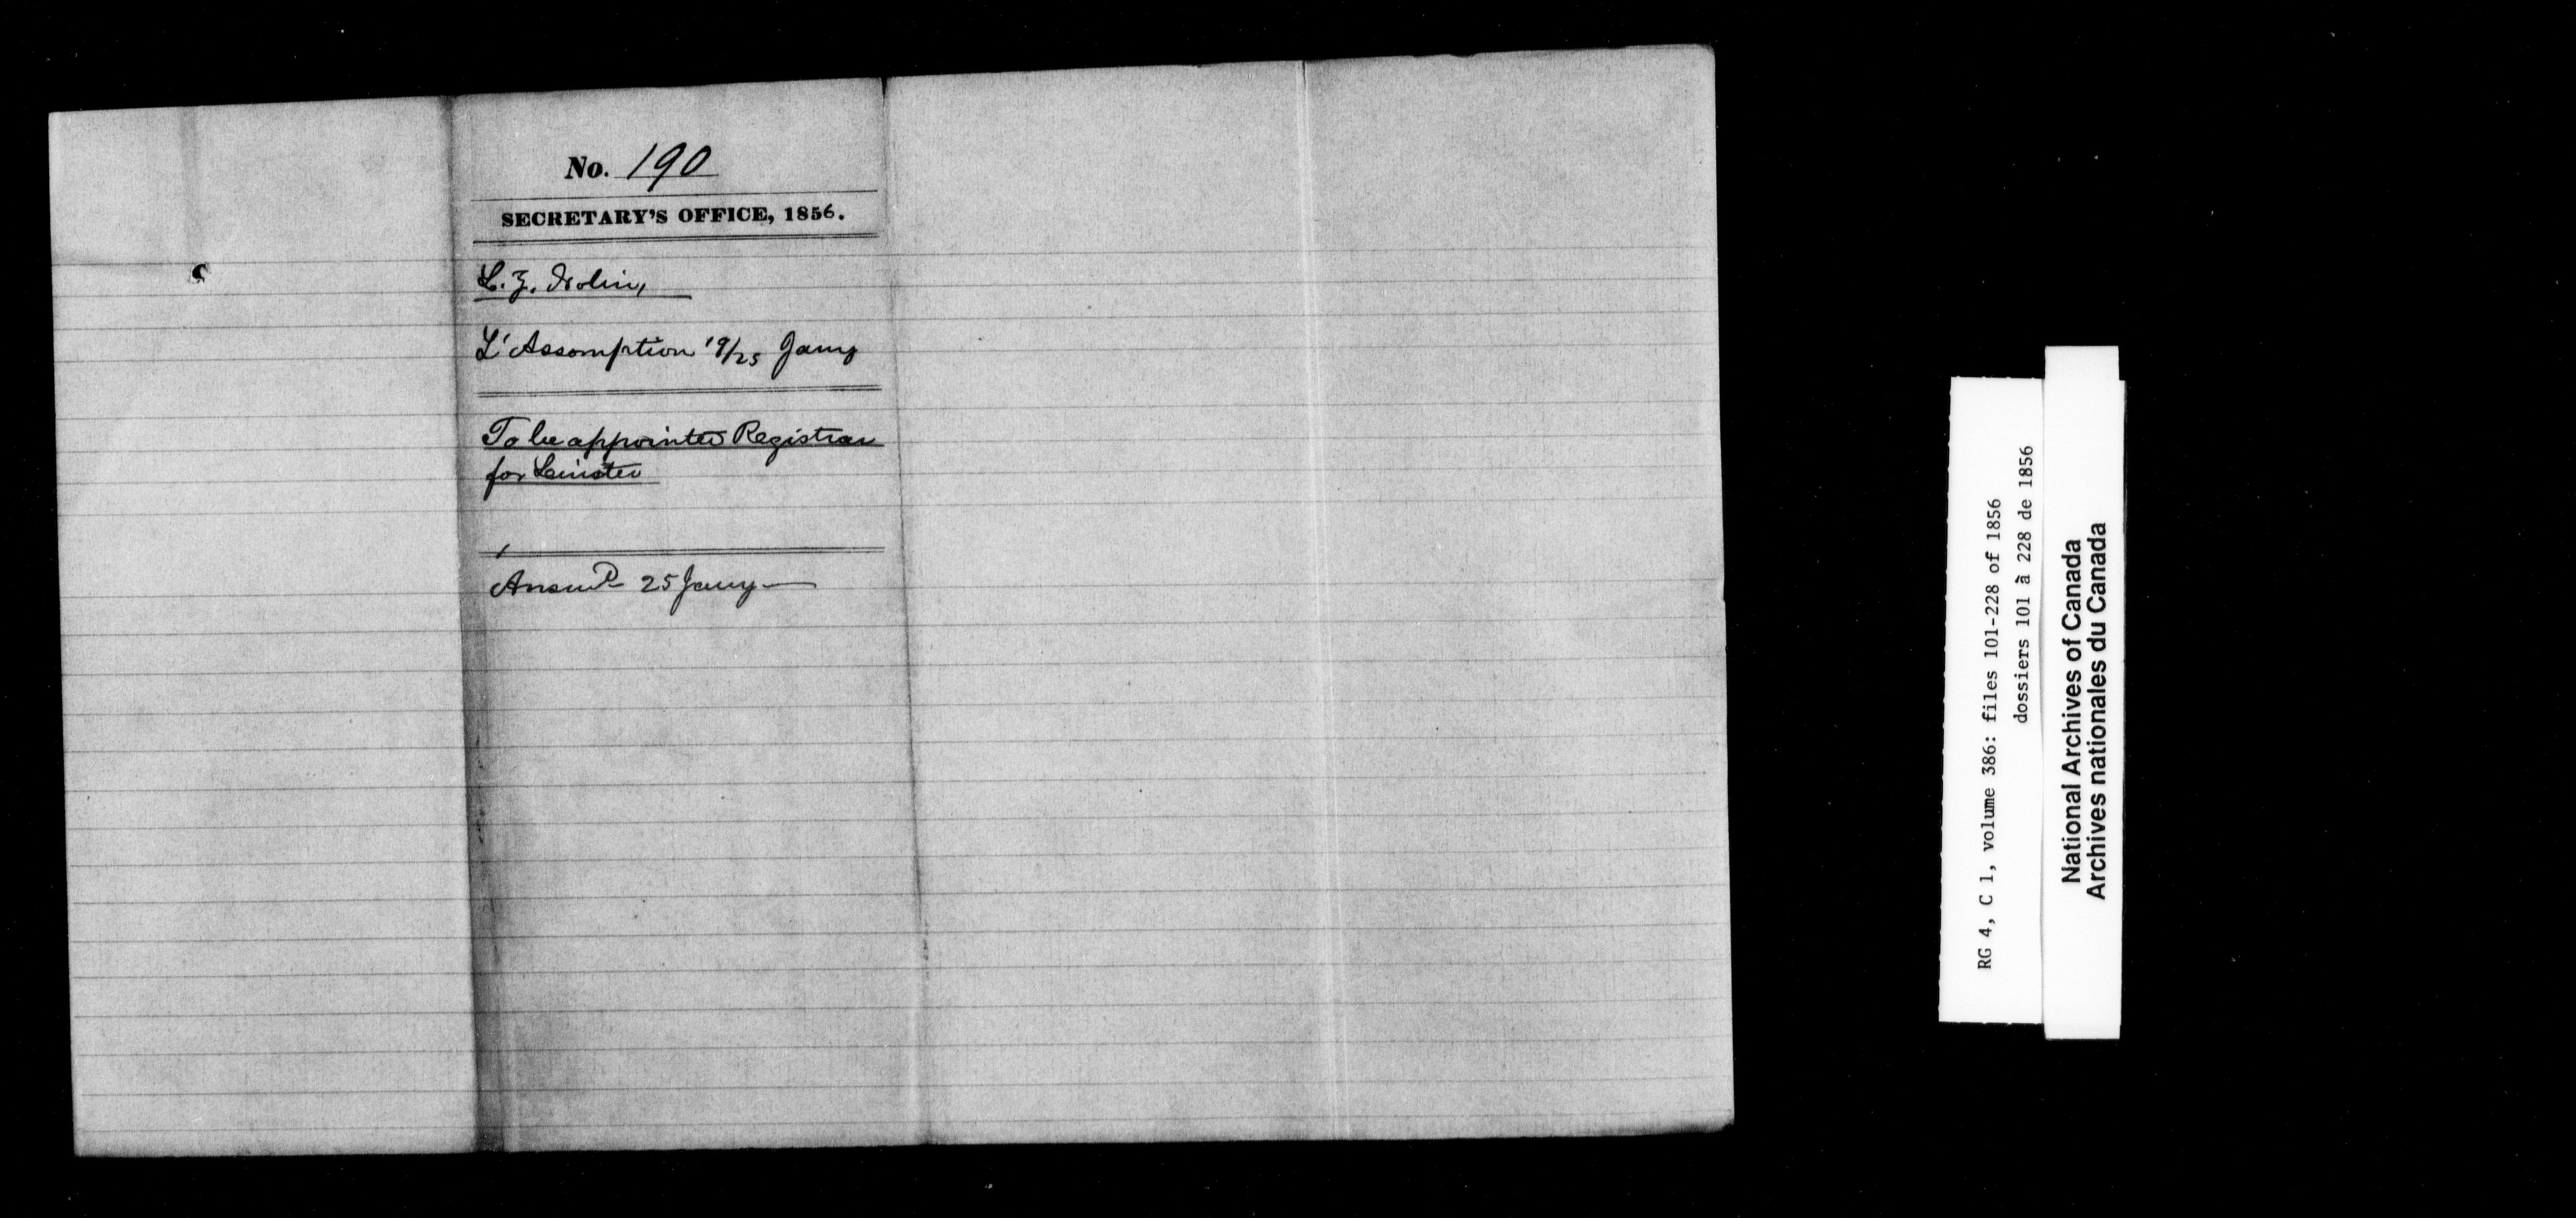 No. 190
SECRETARY'S OFFICE, 1856.
L. Z. Nolin,
L'Assomption 19/25 Jany
To be appointed Registrar
for Leinster
Answd 25 Jany
RG 4, C 1, volume 386: files 101-228 of 1856
dossiers 101 à 228 de 1856
National Archives of Canada
Archives nationales du Canada